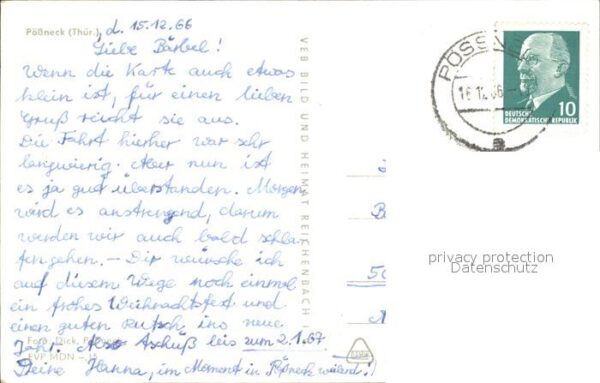 Pößneck (Thür.), d. 15.12.66
Liebe Bärbel!
Wenn die Karte auch etwas
klein ist, für einen lieben
Gruß reicht sie aus.
Die Fahrt hierher war sehr
langwierig. Aber nun ist
es ja gut überstanden. Morgen
wird es anstrengend, darum
werden wir auch bald schla-
fengehen. – Dir wünsche ich
auf diesem Wege noch einmal
ein frohes Weihnachtsfest und
einen guten Rutsch ins neue
Foto: Dick,
Jahr. Also Tschüß bis zum 2.1.67.
EVP MDN
Deine Hanna, im Moment in Pößneck weilend!)
VEB BILD UND HEIMAT REICHENBACH
PÖSSNECK
16.12.66
a
10
DEUTSCHE
DEMOKRATISCHE REPUBLIK
B
50
privacy protection
Datenschutz